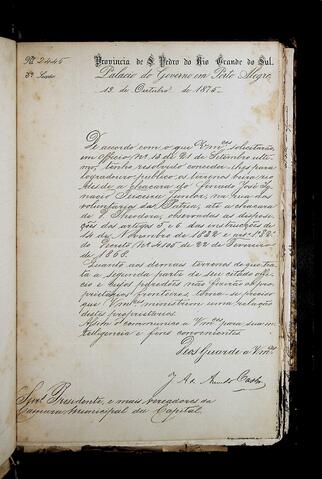 Nº 2445
3ª Secção
Provincia de S. Pedro do Rio Grande do Sul.
Palacio do Governo em Porto Alegre,
12 de Outubro de 1875.
De accordo com o que Vmces solicitarão
em officio Nº 13 de 21 de Setembro ulti-
mo, tenho resolvido conceder-lhes para
logradouro publico os terrenos beira rio
desde a chacara do finado José Ignacio
Teixeira Junior, na rua dos
voluntarios da Patria, até a chacara
de D. Theodora, observadas as disposi-
ções dos artigos 3 e 6 das instrucções de
14 de Novembro de 1832 e
Decreto Nº 4105 de 22 de Fevereiro
de 1868.
Quanto aos demais terrenos de que tra-
ta a segunda parte de seu citado offi-
cio e cujos não farão
proprietarios fronteiros, torna-se preciso
que Vmces ministrem uma relação
destes proprietarios.
Assim o communico a Vmces para sua in-
telligencia e fins convenientes.
Deos Guarde a Vmces
J. A. de Azevedo Castro
Snrs Presidente, e mais vereadores da
Camara Municipal da Capital.